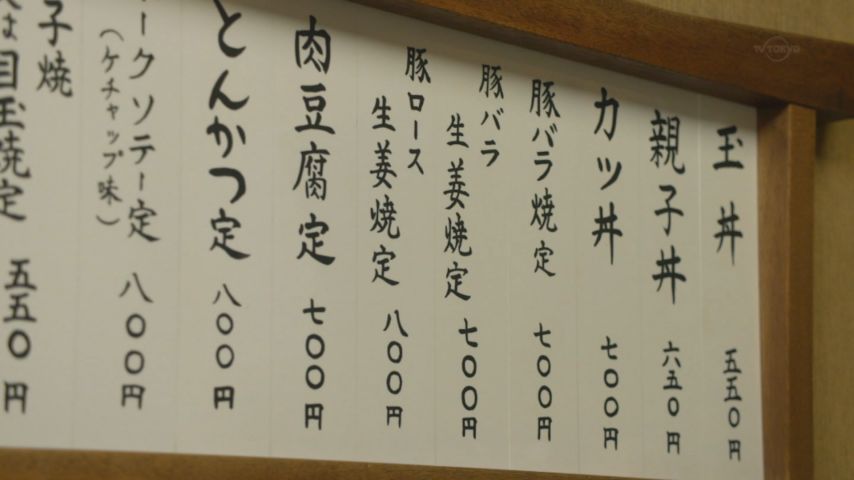 TV TOKYO
玉丼 五五〇円
親子丼 六五〇円
カツ丼 七〇〇円
豚バラ焼定 七〇〇円
豚バラ
生姜焼定 七〇〇円
豚ロース
生姜焼定 八〇〇円
肉豆腐定 七〇〇円
とんかつ定 八〇〇円
ークソテー定 八〇〇円
(ケチャップ味)
子焼
は目玉焼定 五五〇円